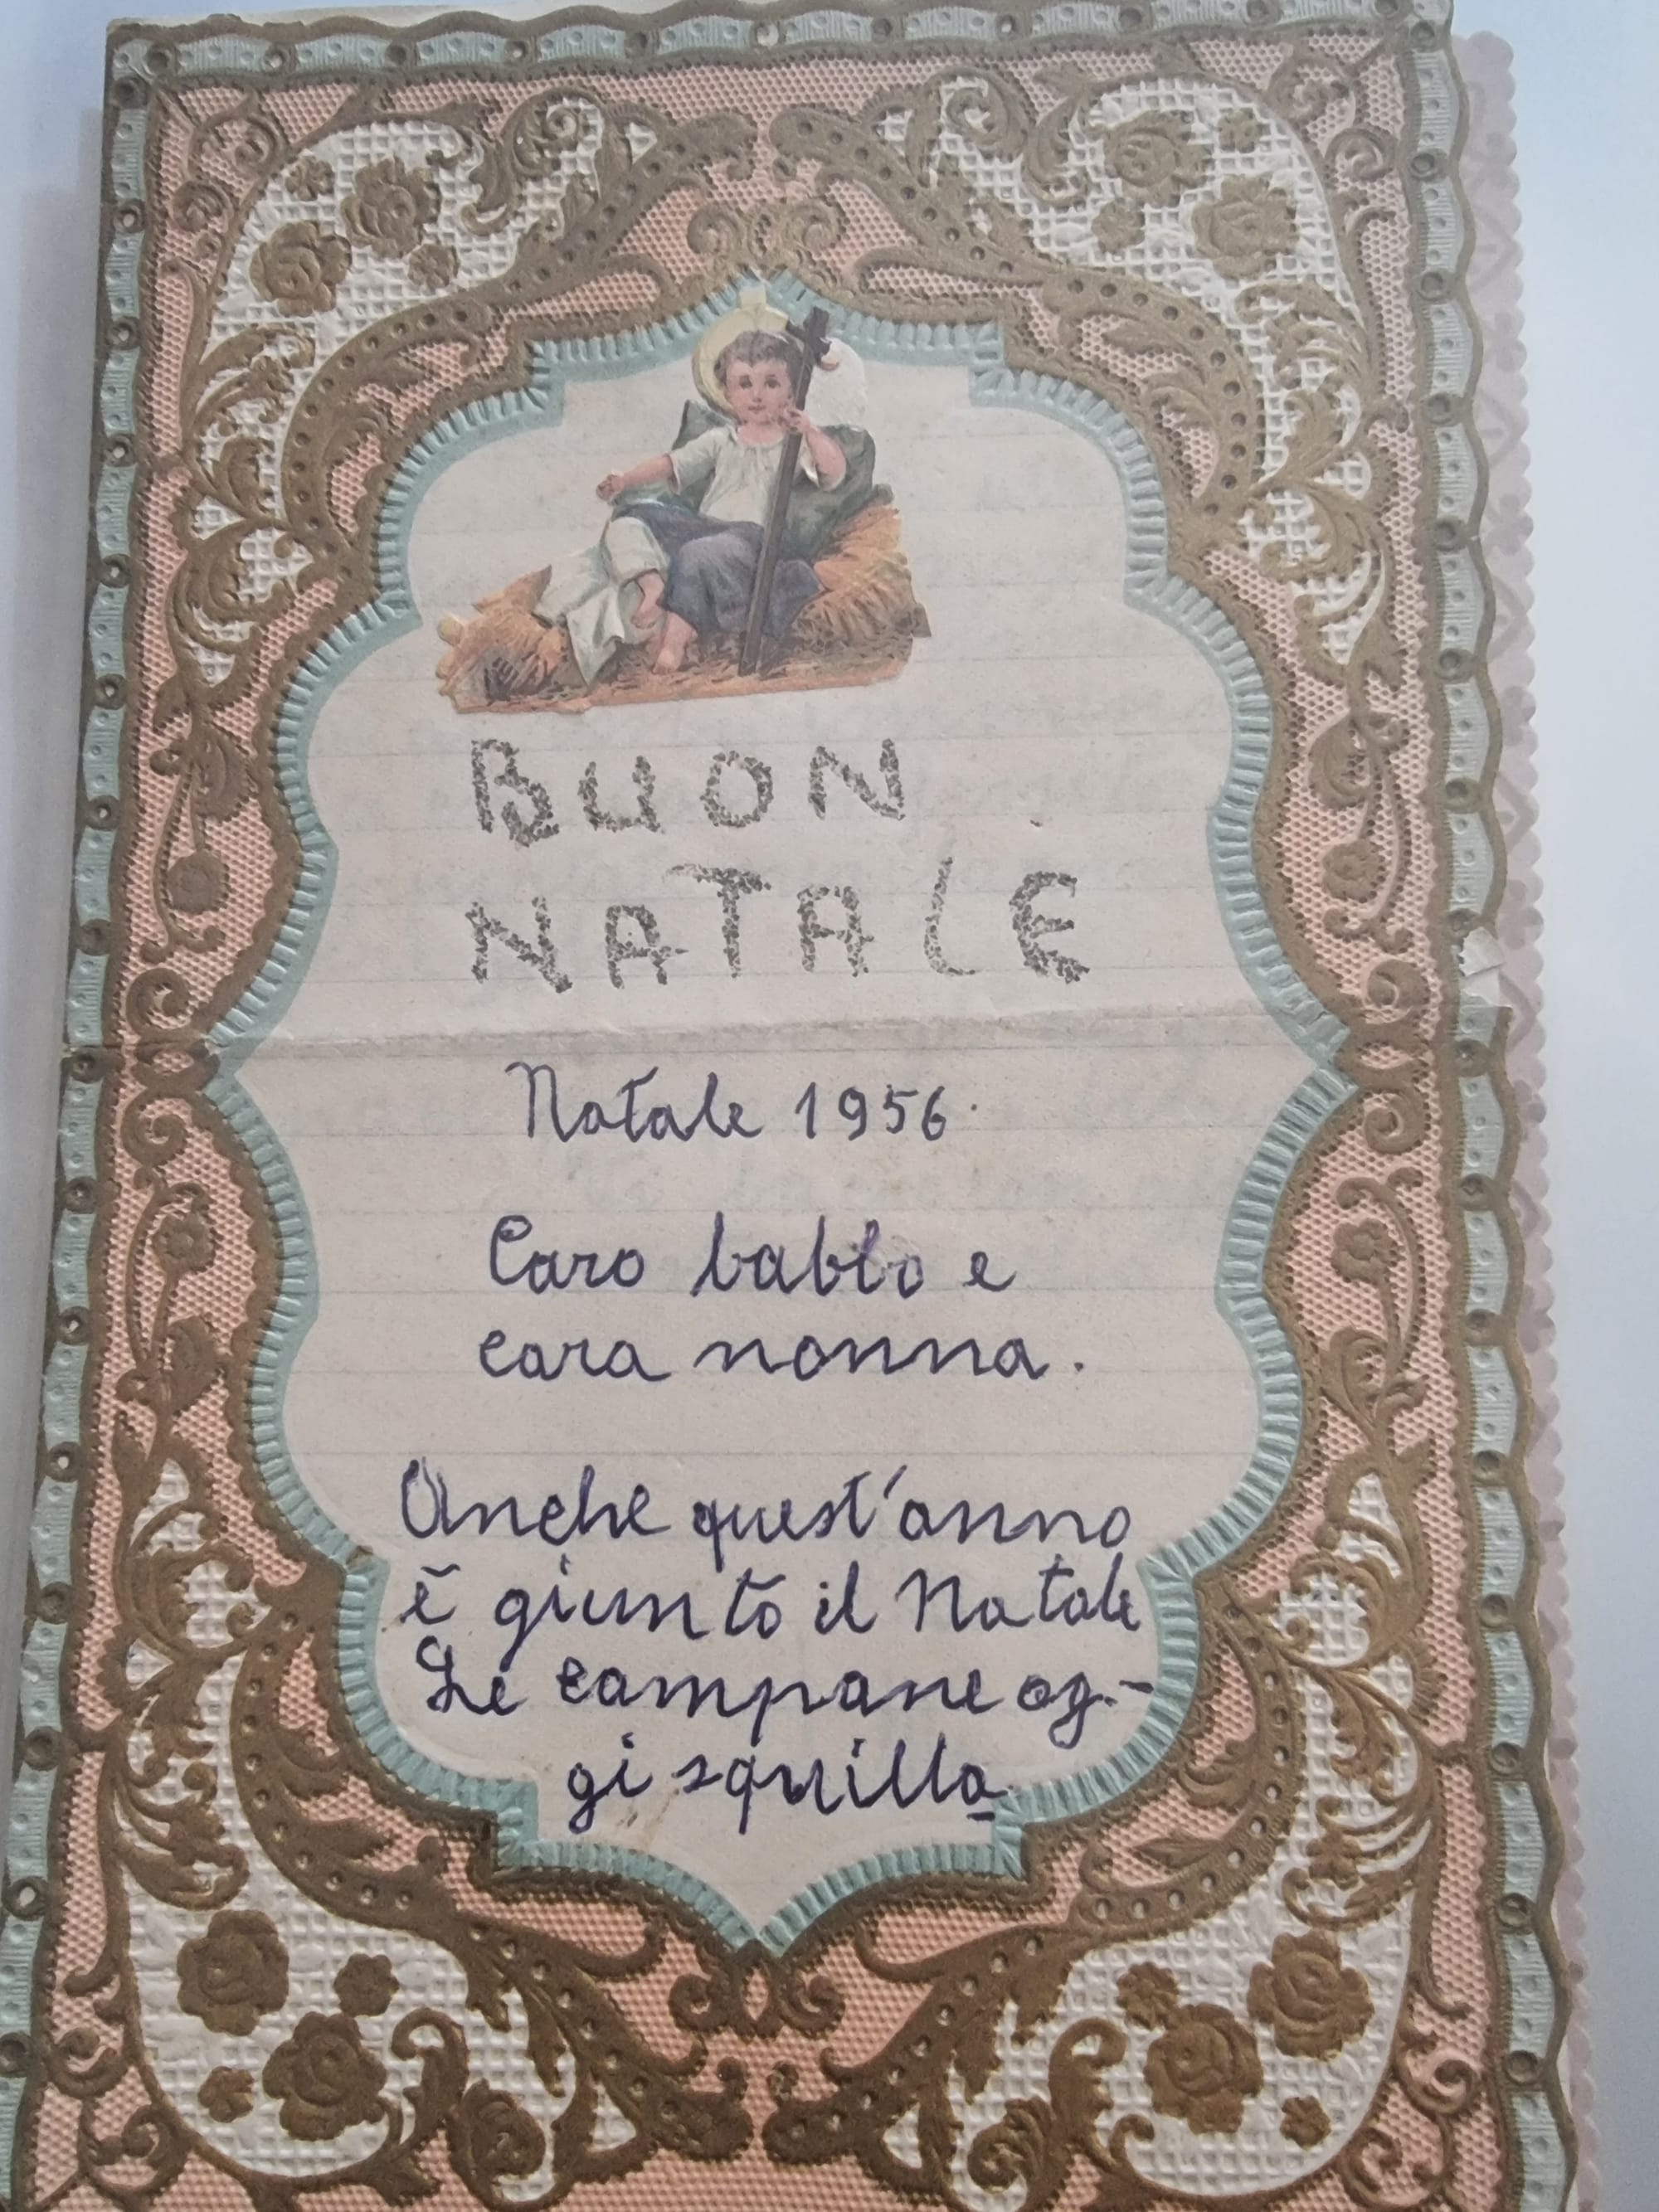 BUON
NATALE
Natale 1956.
Caro babbo e
cara nonna.
Anche quest'anno
è giunto il Natale
Le campane og-
gi squilla